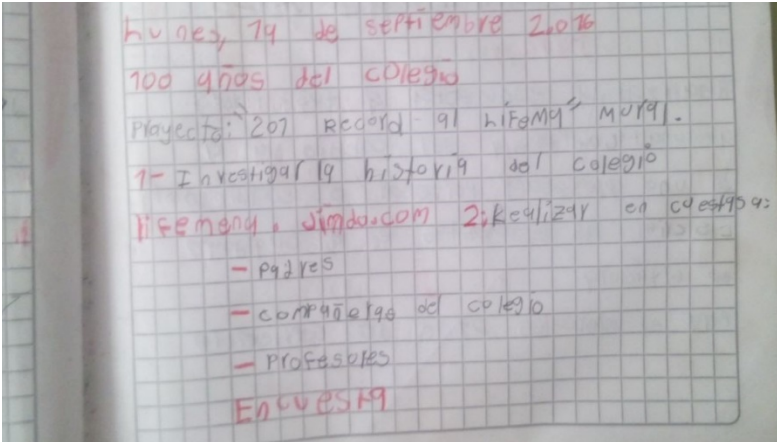 Lunes, 19 de septiembre 2.016
100 años del colegio
Proyecto: "201 Record al Lifemy" mural.
1- Investigar la historia del colegio
lifemeny. Jimdo.com 2: Realizar en cuestas a:
- padres
- compañeras del colegio
- Profesores
Encuesta